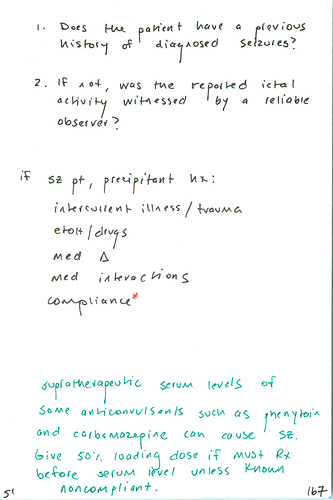 1. Does the patient have a previous
history of diagnosed seizures?
2. If not, was the reported ictal
activity witnessed by a reliable
observer?
if sz pt, precipitant hx:
intercurrent illness/trauma
etoh/drugs
med Δ
med interactions
compliance*
supratherapeutic serum levels of
some anticonvulsants such as phenytoin
and carbamazepine can cause sz.
Give 50% loading dose if must Rx
before serum level unless known
noncompliant.
5'
167